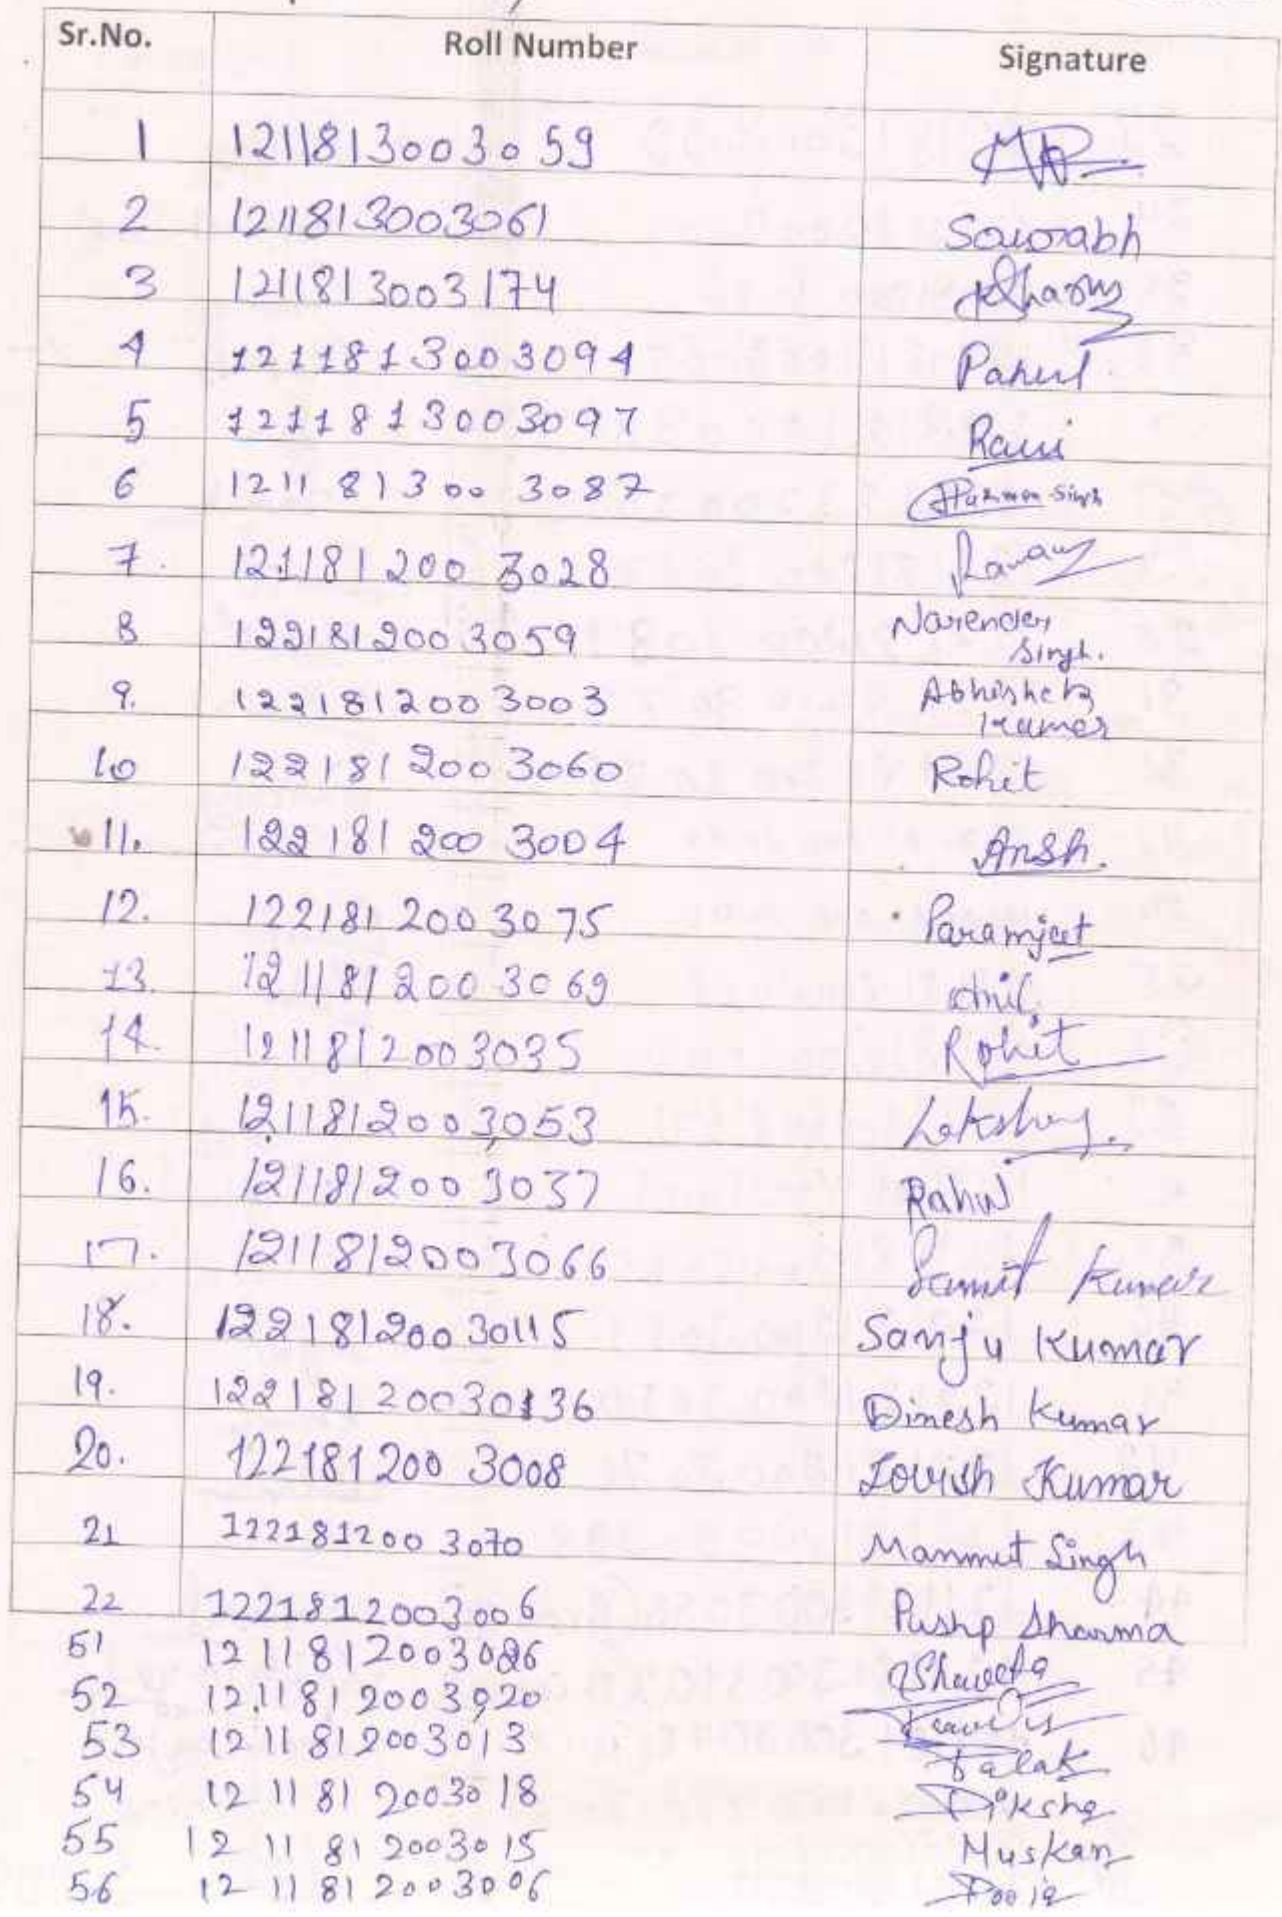 Sr.No. Roll Number Signature
1 1211813003059
2 1211813003061 Sourabh
3 1211813003174
4 1211813003094 Parul
5 1211813003097 Ravi
6 1211813003087 Singh
7. 1211812003028
8 1221812003059 Narender
Singh.
9. 1221812003003 Abhishek
Kumar
10 1221812003060 Rohit
11. 1221812003004 Ansh.
12. 1221812003075 Paramjeet
13. 1211812003069 Anil
14. 1211812003035 Rohit
15. 1211812003053
16. 1211812003037 Rahul
17. 1211812003066 Kumar
18. 12218120030115 Sanju Kumar
19. 12218120030136 Dinesh Kumar
20. 1221812003008 Lovish Kumar
21 1221812003070 Manmeet Singh
22 1221812003006 Pushp Sharma
51 1211812003026 Shweta
52 1211812003020
53 1211812003013 Palak
54 1211812003018 Diksha
55 1211812003015 Muskan
56 1211812003006 Pooja